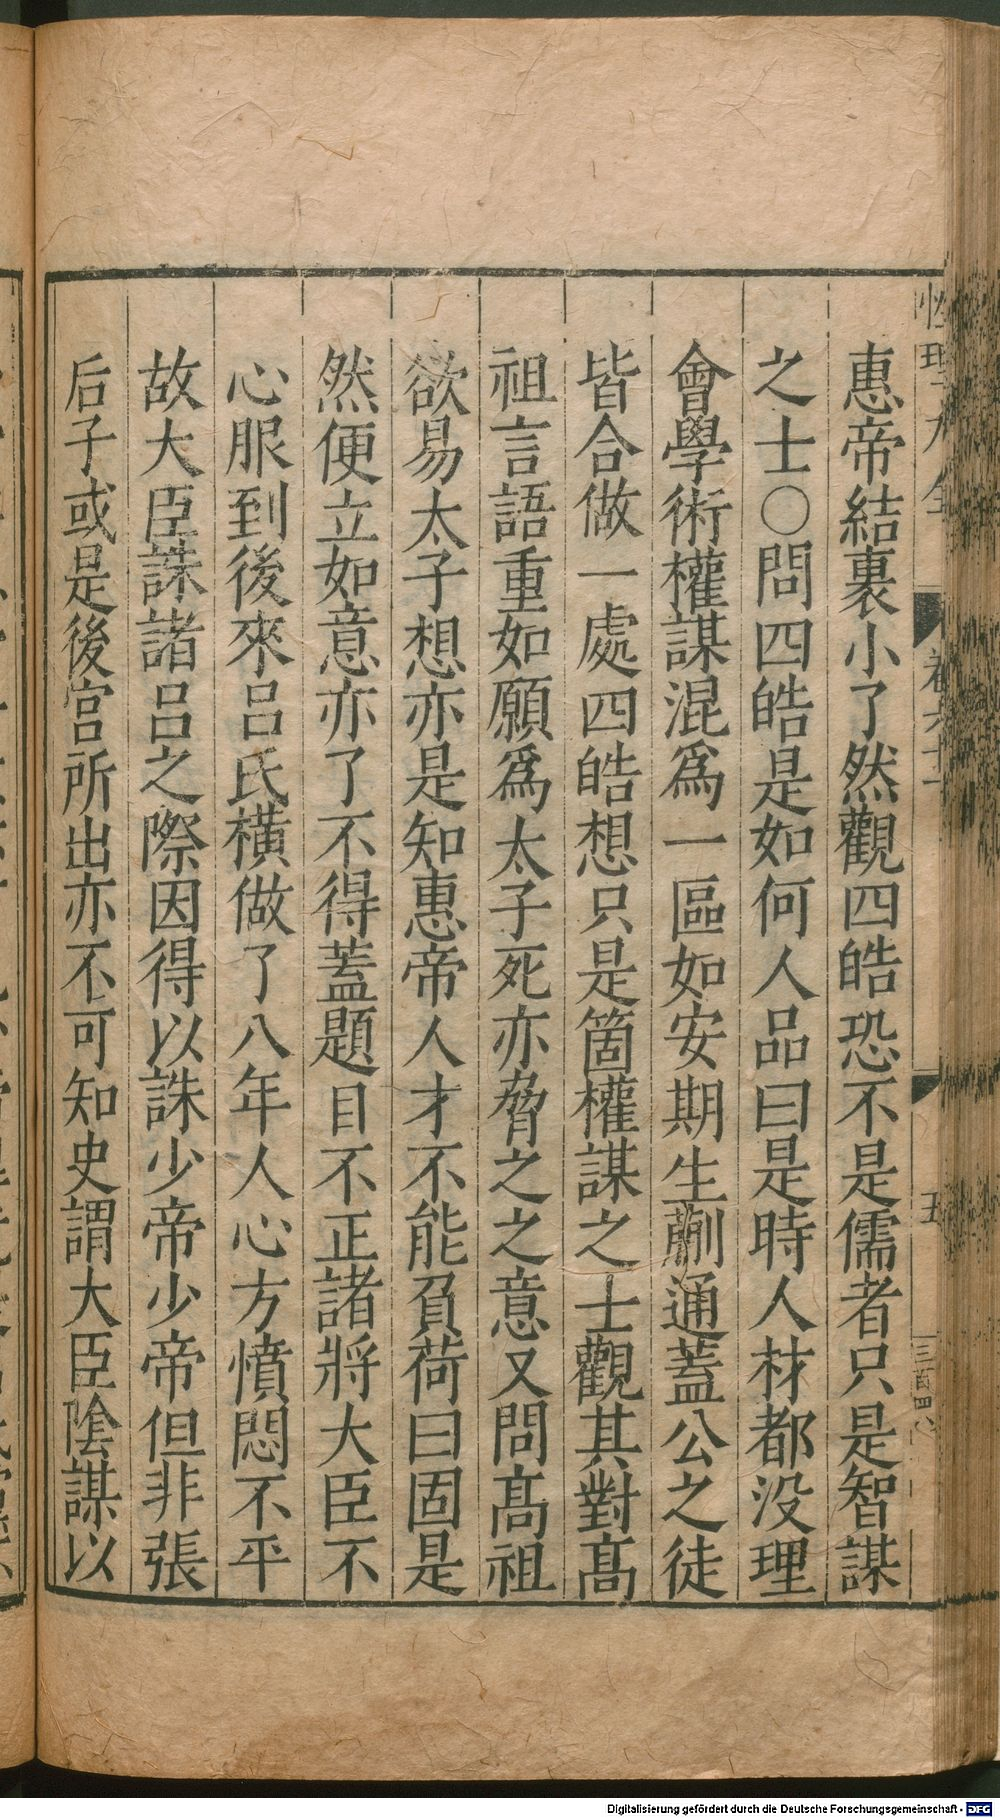 惠帝結裏小了然觀四皓恐不是儒者只是智謀
之士○問四皓是如何人品曰是時人材都没理
會學術權謀混爲一區如安期生蒯通蓋公之徒
皆合做一處四皓想只是箇權謀之士觀其對髙
祖言語重如願爲太子死亦脅之之意又問髙祖
欲易太子想亦是知惠帝人才不能負荷曰固是
然便立如意亦了不得蓋題目不正諸將大臣不
心服到後來吕氏橫做了八年人心方憤悶不平
故大臣誅諸吕之際因得以誅少帝少帝但非張
后子或是後宫所出亦不可知史謂大臣陰謀以
性理大全
卷六十一
五
三百四八
Digitalisierung gefördert durch die Deutsche Forschungsgemeinschaft - DFG